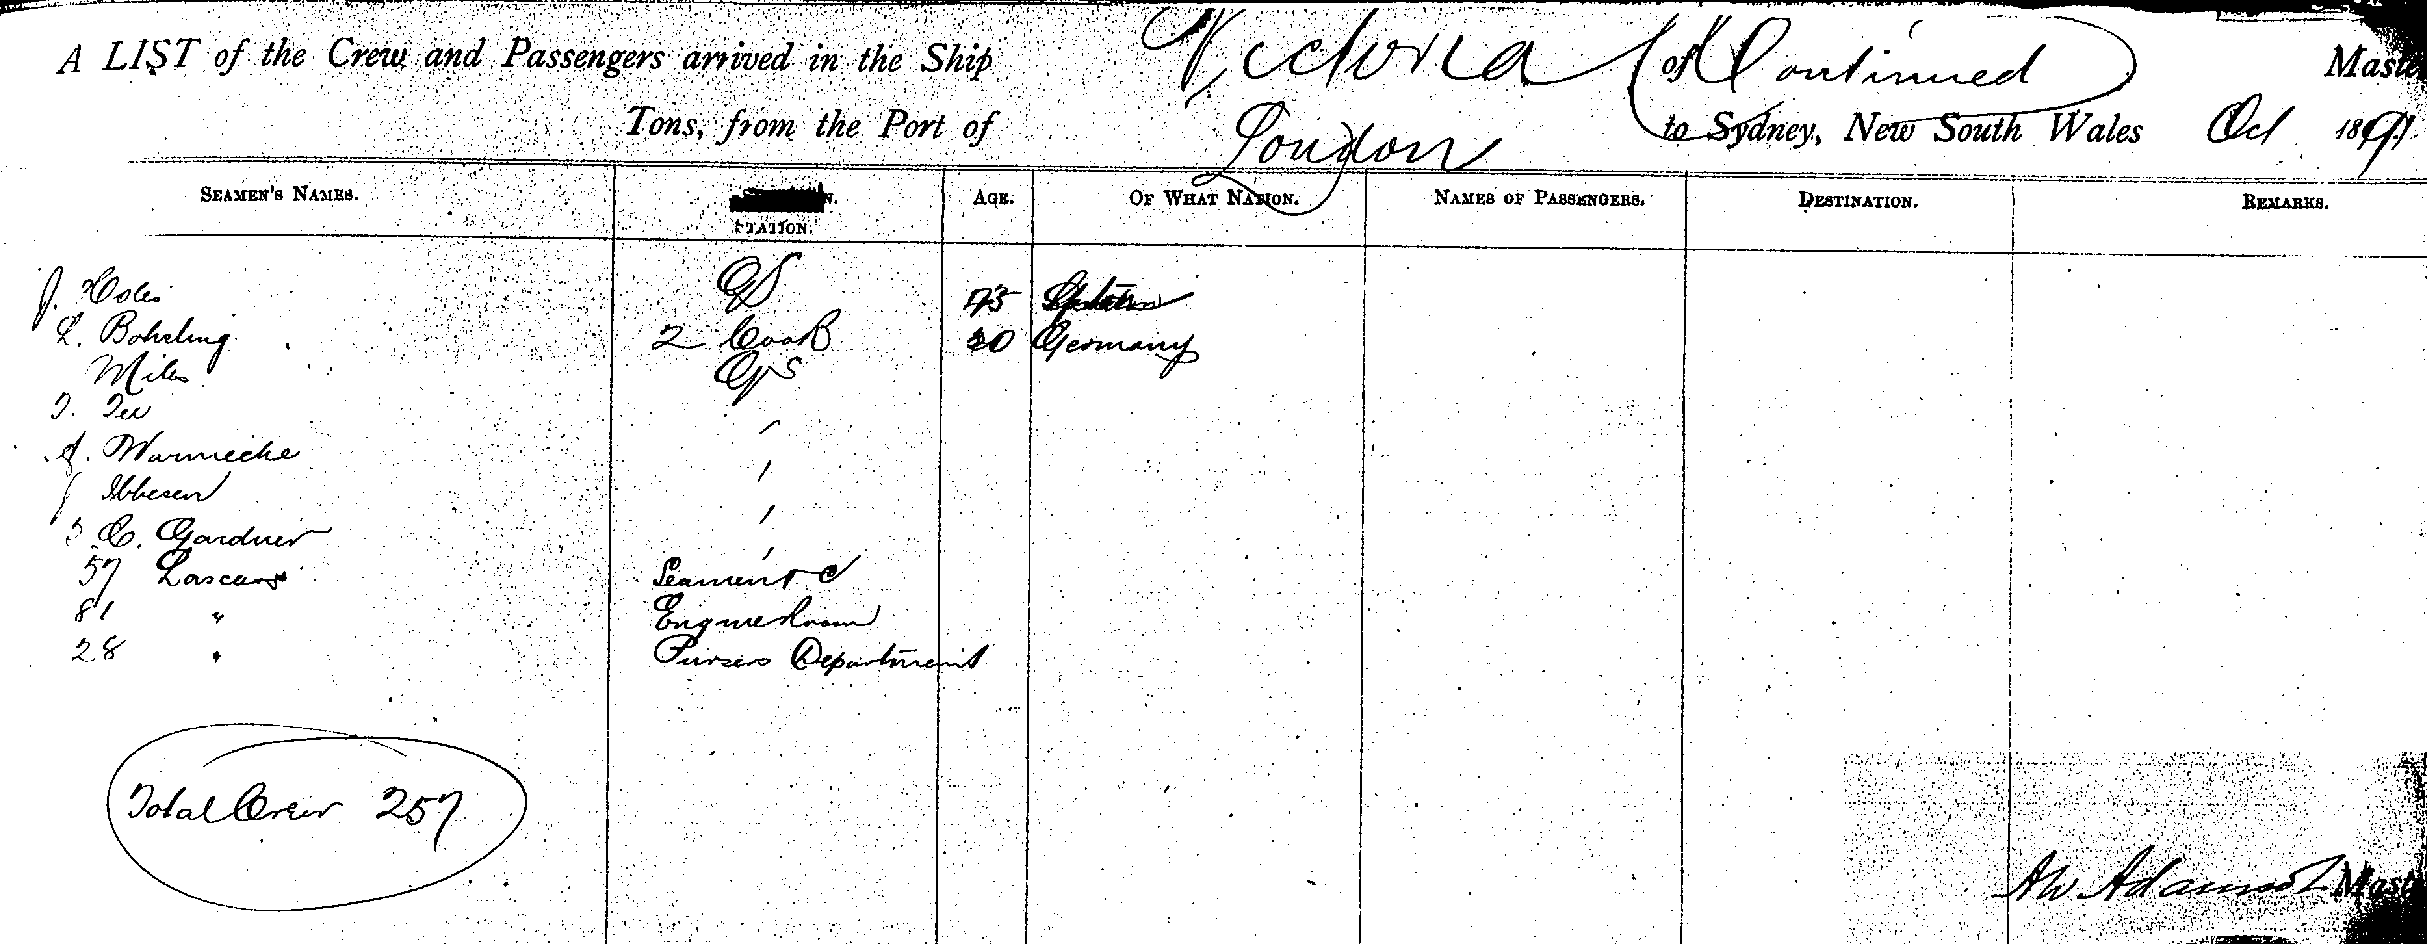 A LIST of the Crew and Passengers arrived in the Ship Victoria (of Continued) Master
Tons, from the Port of London to Sydney, New South Wales Oct 1891
SEAMEN'S NAMES. STATION. AGE. OF WHAT NATION. NAMES OF PASSENGERS. DESTINATION. REMARKS.
J. Coles GS
L. Bohsling 2 Cook 20 Germany
Miles GS
A. Warnecke "
J Ibbesen "
C. Gardner "
57 Lascars Seamen & c
81 " Engine Room
28 " Pursers Department
Total Crew 257
AW Adamson Master